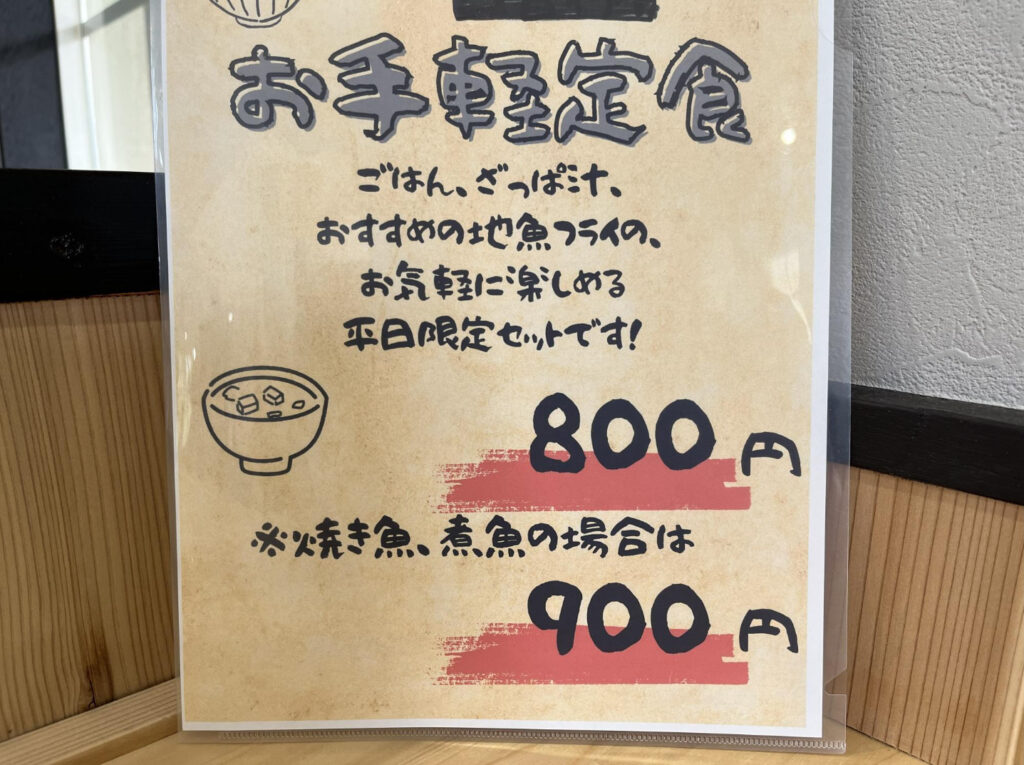 お手軽定食
ごはん、ざっぱ汁、
おすすめの地魚フライの、
お気軽に楽しめる
平日限定セットです!
800円
※焼き魚、煮魚の場合は
900円